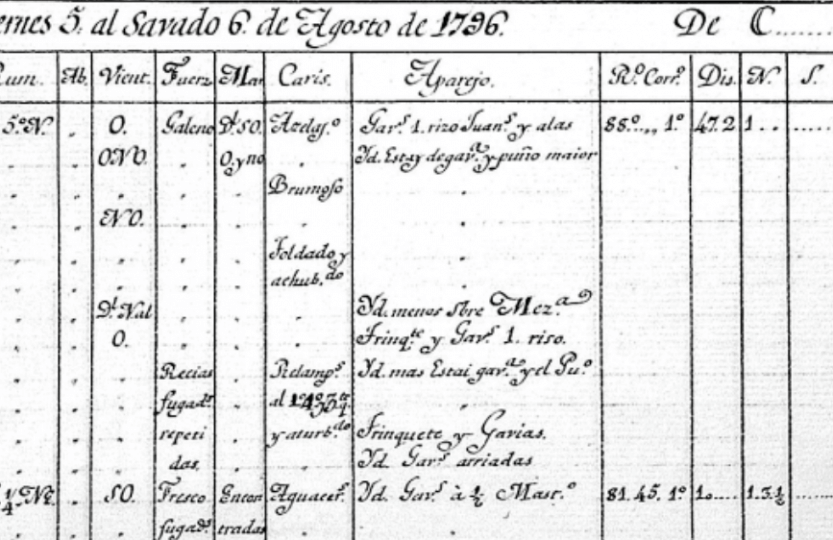 ernes 5. al Savado 6. de Agosto de 1796. De C......
um. Ab. Vient. Fuerz Mar Caris. Aparejo. Ro. Corro. Dis. N. S.
5.º N. O. Galeno D.l SO. Gav.s 1. rizo Juan.s y alas 88.º 1.º 47.2 1
ONO. O. y no Yd. Estay de gav.a y puño maior
Brumoso
NO.
Toldado y
achub.do
D.l N al Yd. menos sbre Mez.a
O. Trinq.te y Gav.s 1. riso.
Recias Relamp.s Yd. mas Estai gav.a y el Pu.o
fugad.s al
repeti y aturb.do Trinquete y Gavias.
das. Yd. Gav.s arriadas
SO. Fresco Encon Aguacer.s Yd. Gav.s à ½ Mast.o 81.45. 1.º 1.3.½
fugad.s tradas